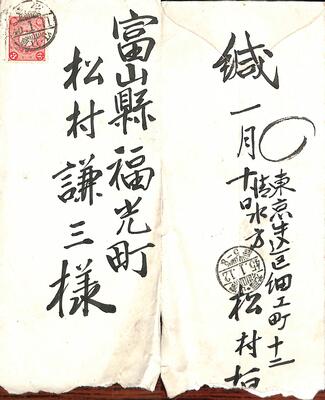 富山縣福光町
松村謙三様
緘
一月十日
東京牛込区細工町十二
清水方
松村
45.1.12